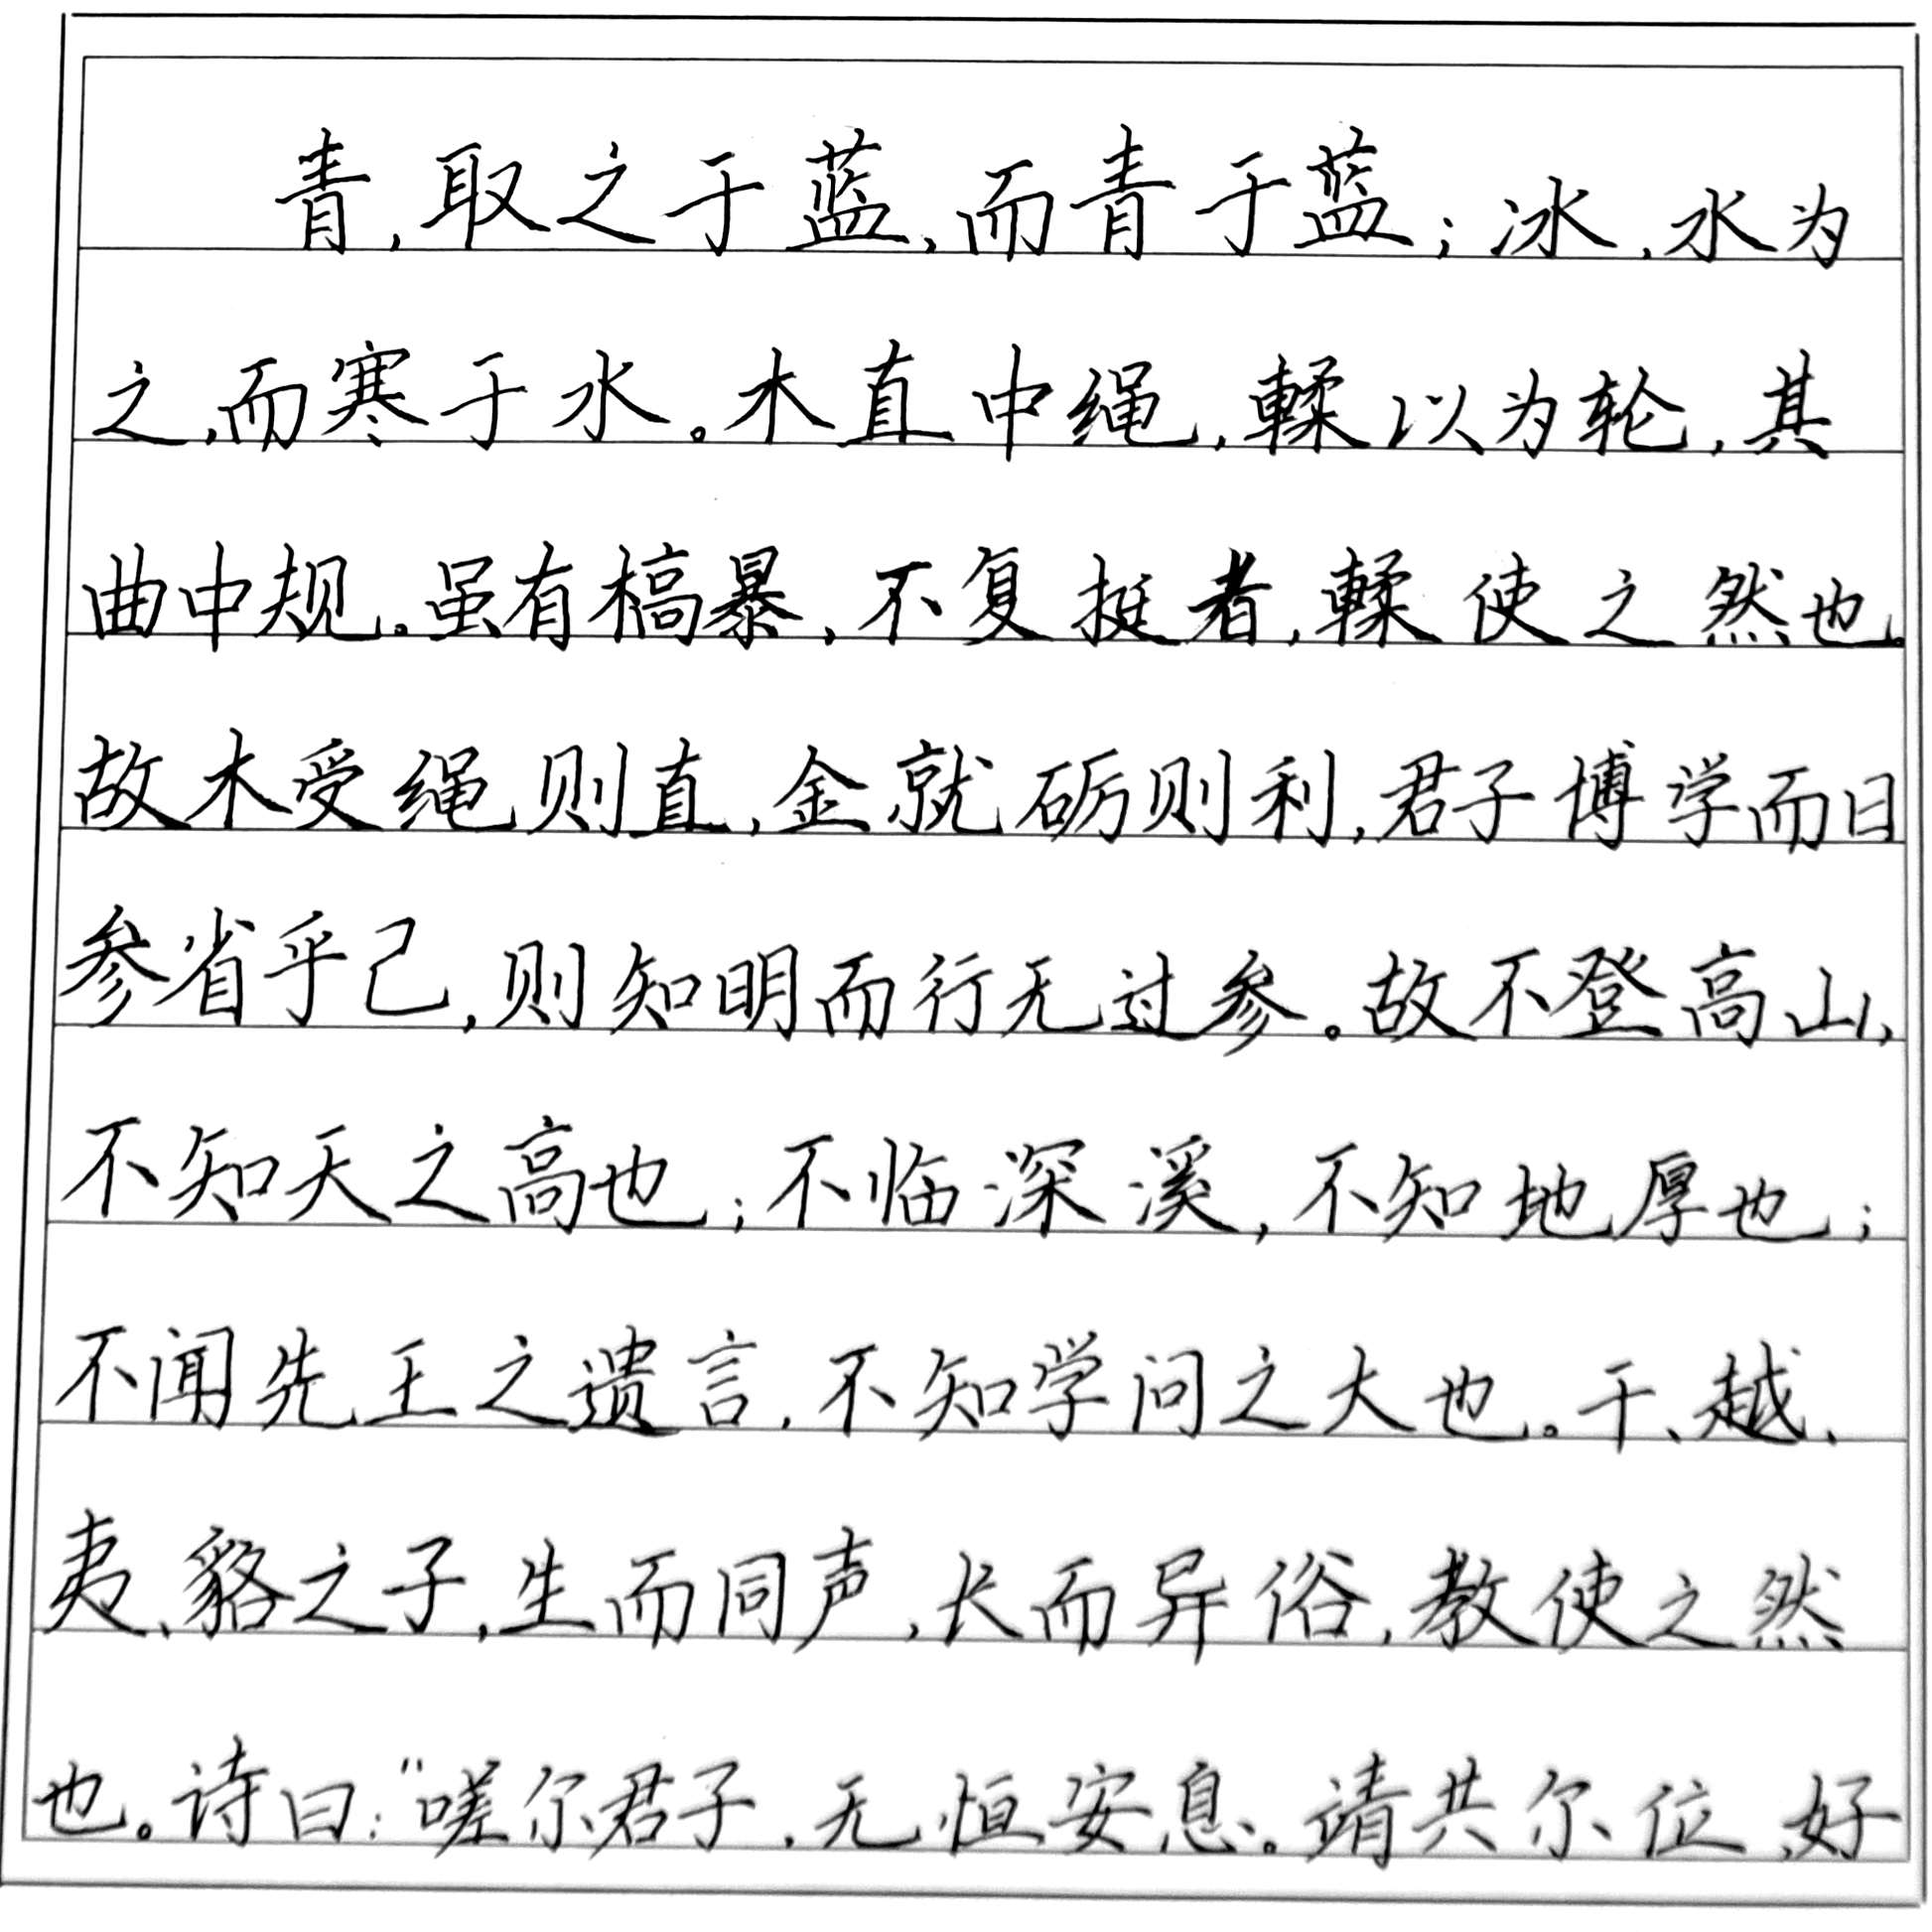 青，取之于蓝，而青于蓝；冰，水为
之，而寒于水。木直中绳，輮以为轮，其
曲中规。虽有槁暴，不复挺者，輮使之然也。
故木受绳则直，金就砺则利，君子博学而日
参省乎己，则知明而行无过参。故不登高山，
不知天之高也；不临深溪，不知地厚也；
不闻先王之遗言，不知学问之大也。干、越、
夷、貉之子，生而同声，长而异俗，教使之然
也。诗曰：“嗟尔君子，无恒安息。靖共尔位，好